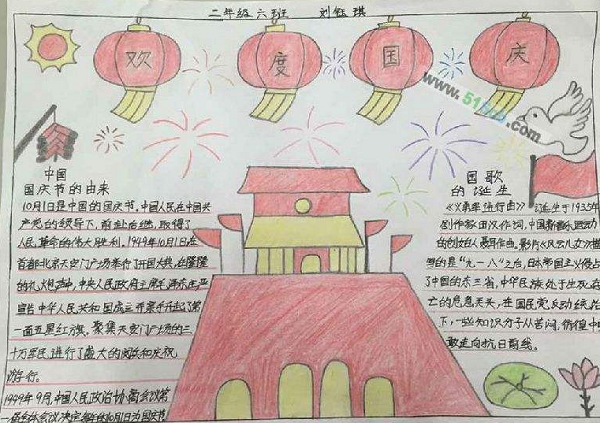 二年级六班 刘钰琪
欢度国庆
www.51
.com
中国
国庆节的由来
10月1日是中国的国庆节,中国人民在中国共
产党的领导下,前赴后继,取得了
人民革命的伟大胜利,1949年10月1日,在
首都北京天安门广场举行了开国大典,在隆隆
的礼炮声中,中央人民政府主席毛泽东庄严
宣告中华人民共和国成立并亲手升起了第
一面五星红旗,聚集天安门广场的三
十万军民进行了盛大的阅兵和庆祝
游行。
1949年9月,中国人民政治协商会议第
一届 会议决定 10月1日为国庆节
国歌
的诞生
《义勇军进行曲》 诞生于1935年
创作 田汉作词,中国新音乐运动
的创始人聂耳作曲,影片《风云儿女》
的是“九一八”之后,日本帝国主义侵占
了中国的东三省,中华民族处于生死存
亡的危急关头,在国民党反动统
下,一些知识分子从苦闷、彷徨中
敢走向抗日前线。